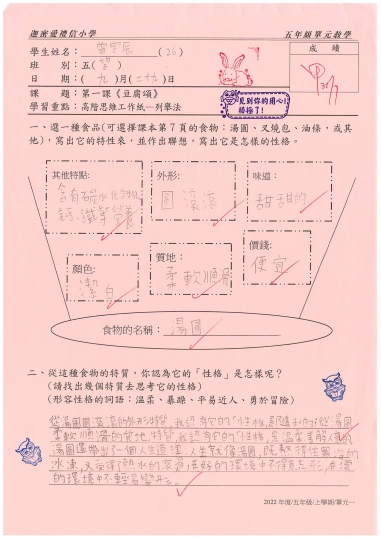 迦密愛禮信小學
五年級單元教學
學生姓名：
(26)
成績
班別：五(望)
日期：(九)月(二十九)日
課題：第一課《豆腐頌》
學習重點：高階思維工作紙—列舉法
見到你的用心！
棒極了！
一、選一種食品(可選擇課本第7頁的食物：湯圓、叉燒包、油條，或其
他)，寫出它的特性來，並作出聯想，寫出它是怎樣的性格。
其他特點：
含有碳水化合物
鈣、鐵等營養
外形：
圓滾滾
味道：
甜甜的
顏色：
潔白
質地：
柔軟順滑
價錢：
便宜
食物的名稱：湯圓
二、從這種食物的特質，你認為它的「性格」是怎樣呢？
(請找出幾個特質去思考它的性格)
(形容性格的詞語：溫柔、暴躁、平易近人、勇於冒險)
從湯圓圓滾滾的外形特質，我認為它的「性格」是 從湯圓
柔軟順滑的質地特質，我認為它的「性格」是溫柔
湯圓還帶出了一個人生道理，人生就像湯圓，既
冰凍，又受得了熱水的 在好的環境中不得意忘形，在
的環境中不輕易
2022年度/五年級/上學期/單元一